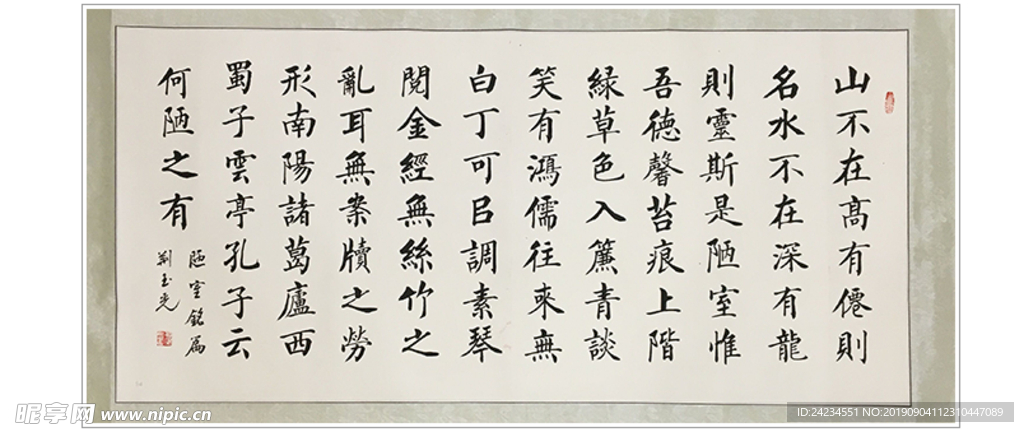 山不在高有僊則
名水不在深有龍
則靈斯是陋室惟
吾德馨苔痕上階
緑草色入簾青談
笑有鴻儒往來無
白丁可㠯調素琴
閱金經無絲竹之
亂耳無案牘之勞
形南陽諸葛廬西
蜀子雲亭孔子云
何陋之有
陋室銘篇
荊玉光
昵享网 www.nipic.cn
ID:24234551 NO:20190904112310447089